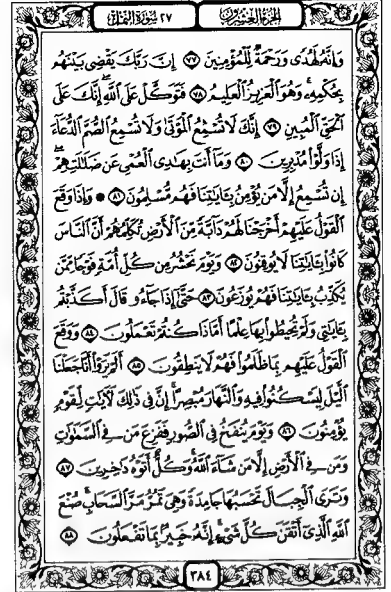 الجزء العشرون ٢٧ سورة النمل
وَإِنَّهُ لَهُدًى وَرَحْمَةٌ لِّلْمُؤْمِنِينَ ٧٧ إِنَّ رَبَّكَ يَقْضِى بَيْنَهُم
بِحُكْمِهِۦ وَهُوَ الْعَزِيزُ الْعَلِيمُ ٧٨ فَتَوَكَّلْ عَلَى اللَّهِ إِنَّكَ عَلَى
الْحَقِّ الْمُبِينِ ٧٩ إِنَّكَ لَا تُسْمِعُ الْمَوْتَىٰ وَلَا تُسْمِعُ الصُّمَّ الدُّعَآءَ
إِذَا وَلَّوْا مُدْبِرِينَ ٨٠ وَمَآ أَنتَ بِهَـٰدِى الْعُمْىِ عَن ضَلَـٰلَتِهِمْ
إِن تُسْمِعُ إِلَّا مَن يُؤْمِنُ بِـَٔايَـٰتِنَا فَهُم مُّسْلِمُونَ ٨١ ۞ وَإِذَا وَقَعَ
الْقَوْلُ عَلَيْهِمْ أَخْرَجْنَا لَهُمْ دَآبَّةً مِّنَ الْأَرْضِ تُكَلِّمُهُمْ أَنَّ النَّاسَ
كَانُوا بِـَٔايَـٰتِنَا لَا يُوقِنُونَ ٨٢ وَيَوْمَ نَحْشُرُ مِن كُلِّ أُمَّةٍ فَوْجًا مِّمَّن
يُكَذِّبُ بِـَٔايَـٰتِنَا فَهُمْ يُوزَعُونَ ٨٣ حَتَّىٰٓ إِذَا جَآءُو قَالَ أَكَذَّبْتُم
بِـَٔايَـٰتِى وَلَمْ تُحِيطُوا بِهَا عِلْمًا أَمَّاذَا كُنتُمْ تَعْمَلُونَ ٨٤ وَوَقَعَ
الْقَوْلُ عَلَيْهِم بِمَا ظَلَمُوا فَهُمْ لَا يَنطِقُونَ ٨٥ أَلَمْ يَرَوْا أَنَّا جَعَلْنَا
الَّيْلَ لِيَسْكُنُوا فِيهِ وَالنَّهَارَ مُبْصِرًا إِنَّ فِى ذَٰلِكَ لَـَٔايَـٰتٍ لِّقَوْمٍ
يُؤْمِنُونَ ٨٦ وَيَوْمَ يُنفَخُ فِى الصُّورِ فَفَزِعَ مَن فِى السَّمَـٰوَٰتِ
وَمَن فِى الْأَرْضِ إِلَّا مَن شَآءَ اللَّهُ وَكُلٌّ أَتَوْهُ دَٰخِرِينَ ٨٧
وَتَرَى الْجِبَالَ تَحْسَبُهَا جَامِدَةً وَهِىَ تَمُرُّ مَرَّ السَّحَابِ صُنْعَ
اللَّهِ الَّذِىٓ أَتْقَنَ كُلَّ شَىْءٍ إِنَّهُۥ خَبِيرٌۢ بِمَا تَفْعَلُونَ ٨٨
٣٨٤